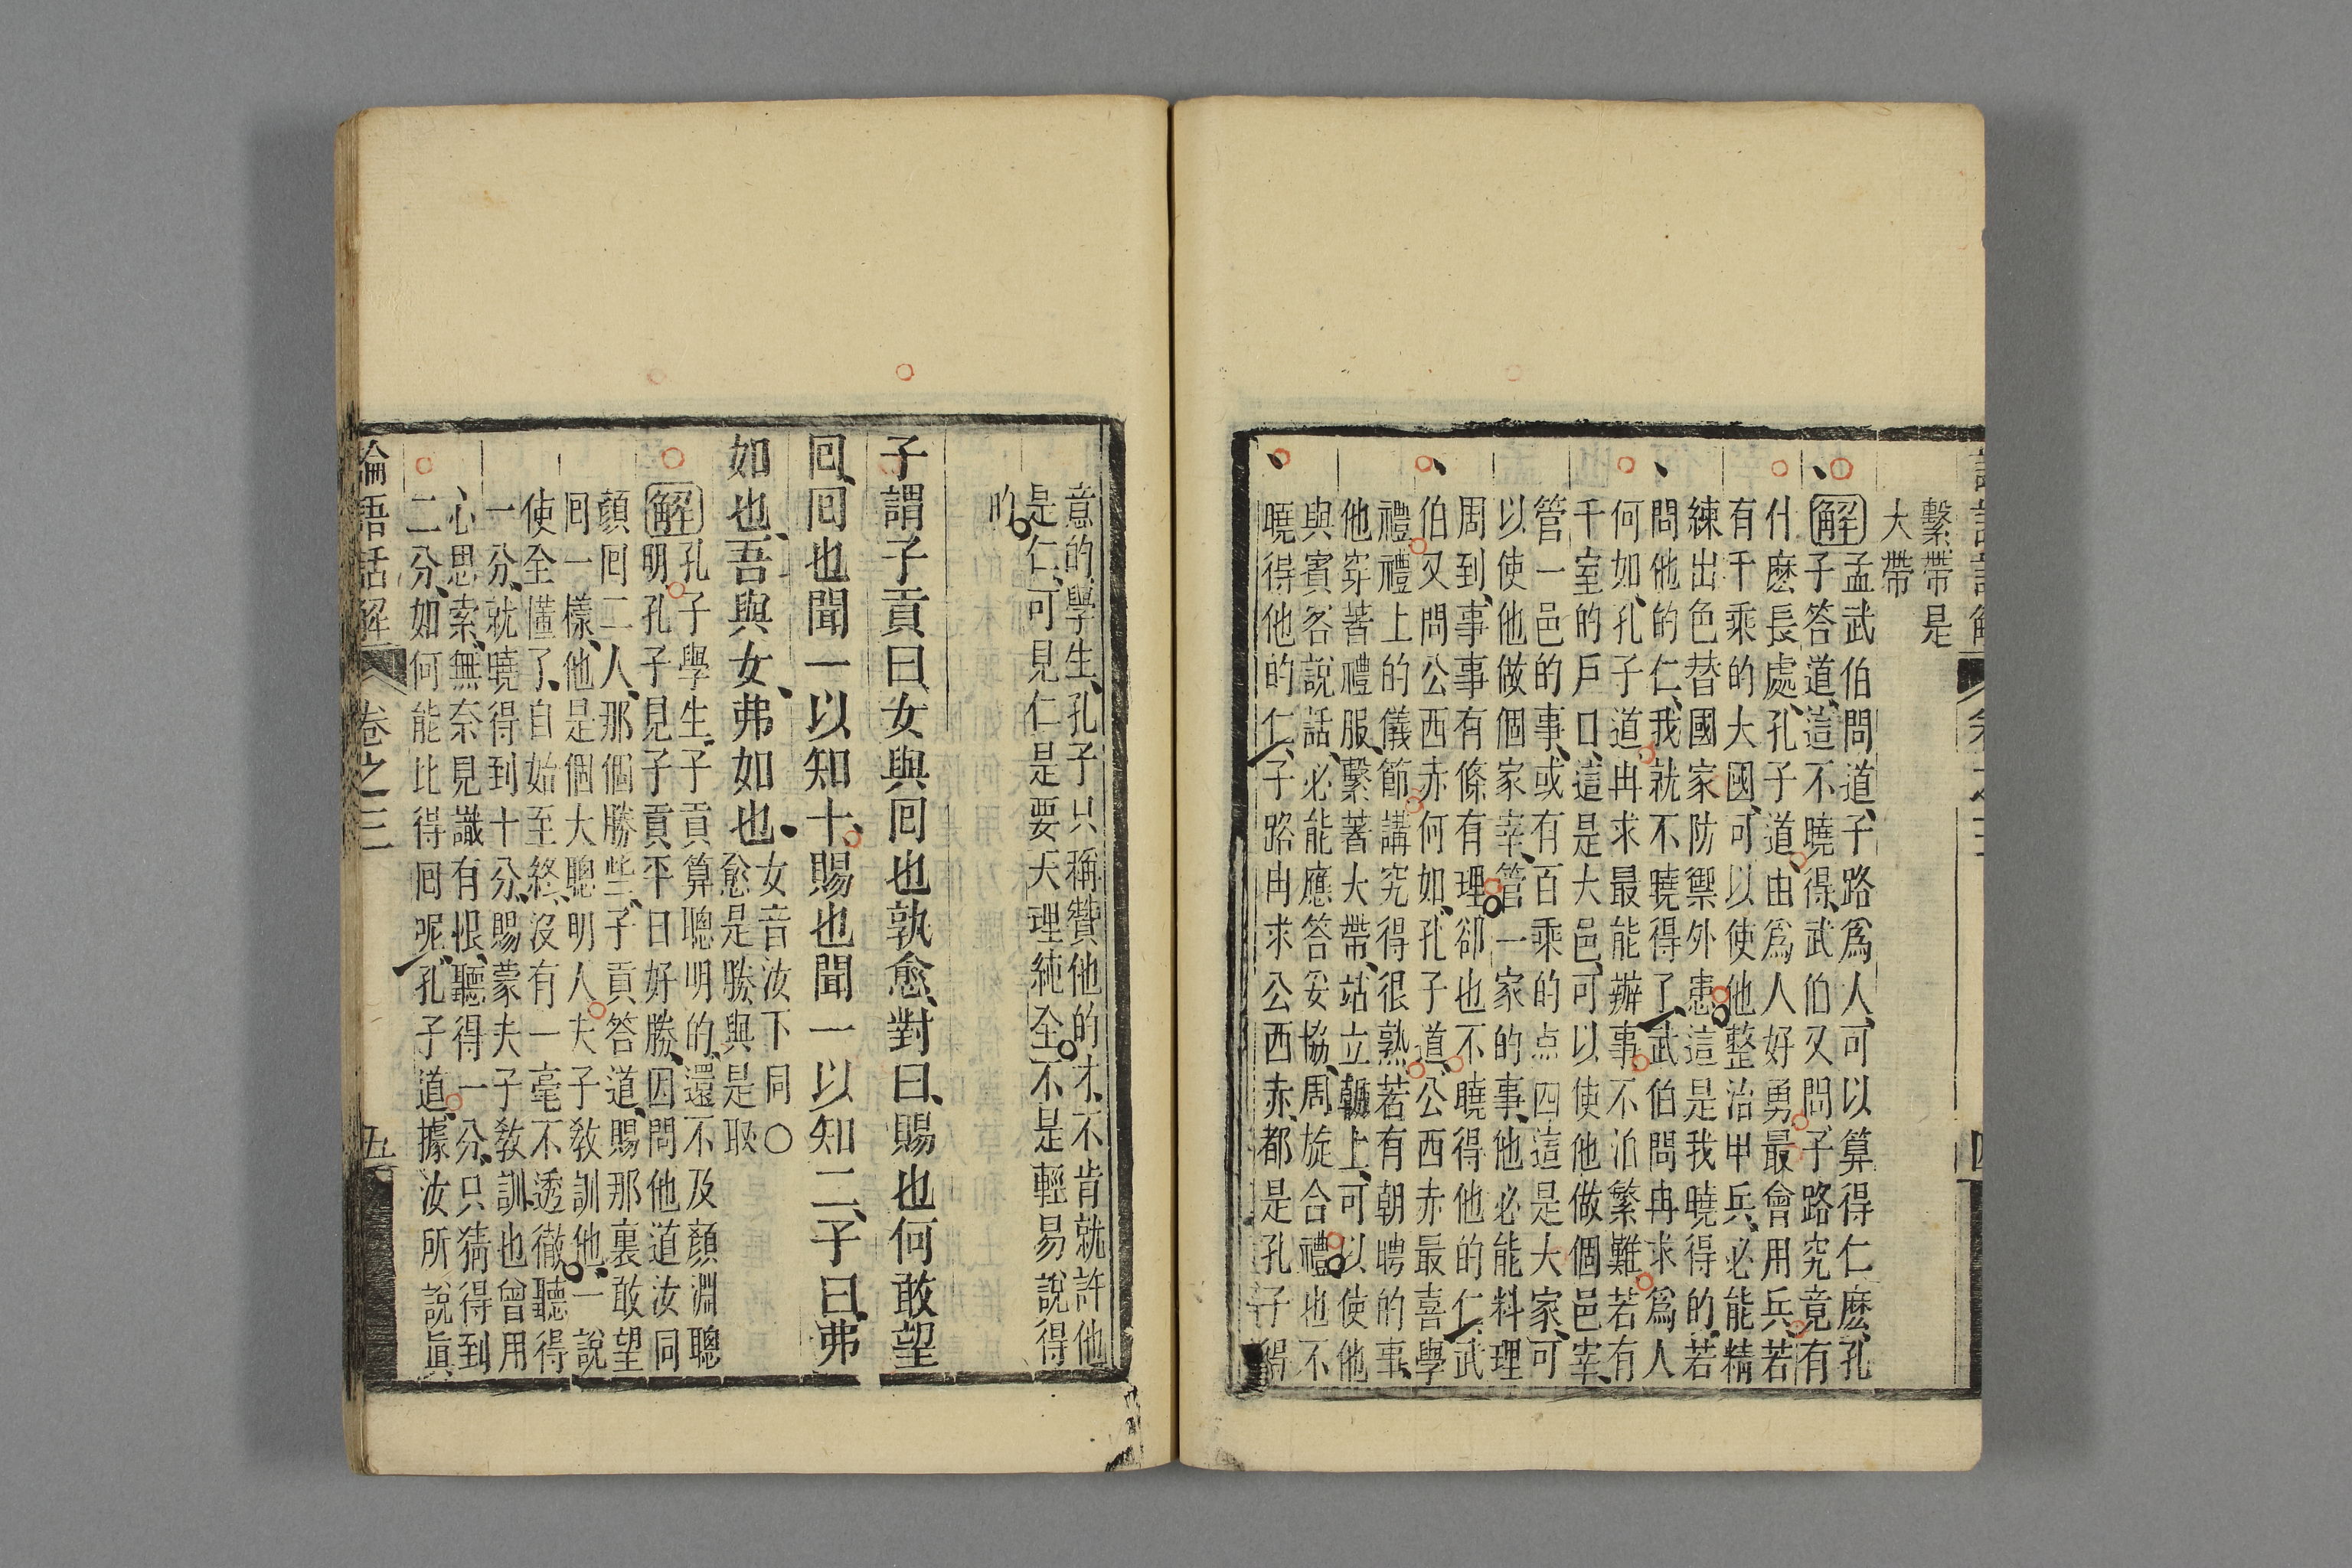 繫帶是
大帶
解孟武伯問道、子路爲人、可以算得仁麽、孔
子答道、這不曉得、武伯又問、子路究竟有
什麽長處、孔子道、由爲人好勇、最會用兵、若
有千乘的大國、可以使他整治甲兵、必能精
練出色、替國家防禦外患、這是我曉得的、若
問他的仁、我就不曉得了、武伯問冉求爲人
何如、孔子道、冉求最能辦事、不泊繁難、若有
千室的戶口、這是大邑、可以使他做個邑宰、
管一邑的事、或有百乘的点四、這是大家、可
以使他做個家宰、管一家的事、他必能料理
周到、事事有條有理、卻也不曉得他的仁、武
伯又問公西赤何如、孔子道、公西赤最喜學
禮、禮上的儀節、講究得很熟、若有朝聘的事、
他穿著禮服、繫著大帶、站立朝上、可以使他
與賓客說話、必能應答妥協、周旋合禮、也不
曉得他的仁、子路冉求公西赤、都是孔子得
意的學生、孔子只稱贊他的才、不肯就許他
是仁、可見仁是要天理純全、不是輕易說得
的
子謂子貢曰女與囘也孰愈、對曰、賜也何敢望
囘、囘也聞一以知十、賜也聞一以知二、子曰、弗
如也、吾與女、弗如也、
女音汝下同○
愈是勝與是取
解孔子學生、子貢算聰明的、還不及顏淵聰
明、孔子見子貢平日好勝、因問他道、汝同
顏囘二人、那個勝些、子貢答道、賜那裏敢望
囘一樣、他是個大聰明人、夫子敎訓他、一說
使全懂了、自始至終、沒有一毫不透徹、聽得
一分、就曉得到十分、賜蒙夫子敎訓、也曾用
心思索、無奈見識有恨、聽得一分、只猜得到
二分、如何能比得囘呢、孔子道、據汝所說、眞
論語話解
卷之三
五